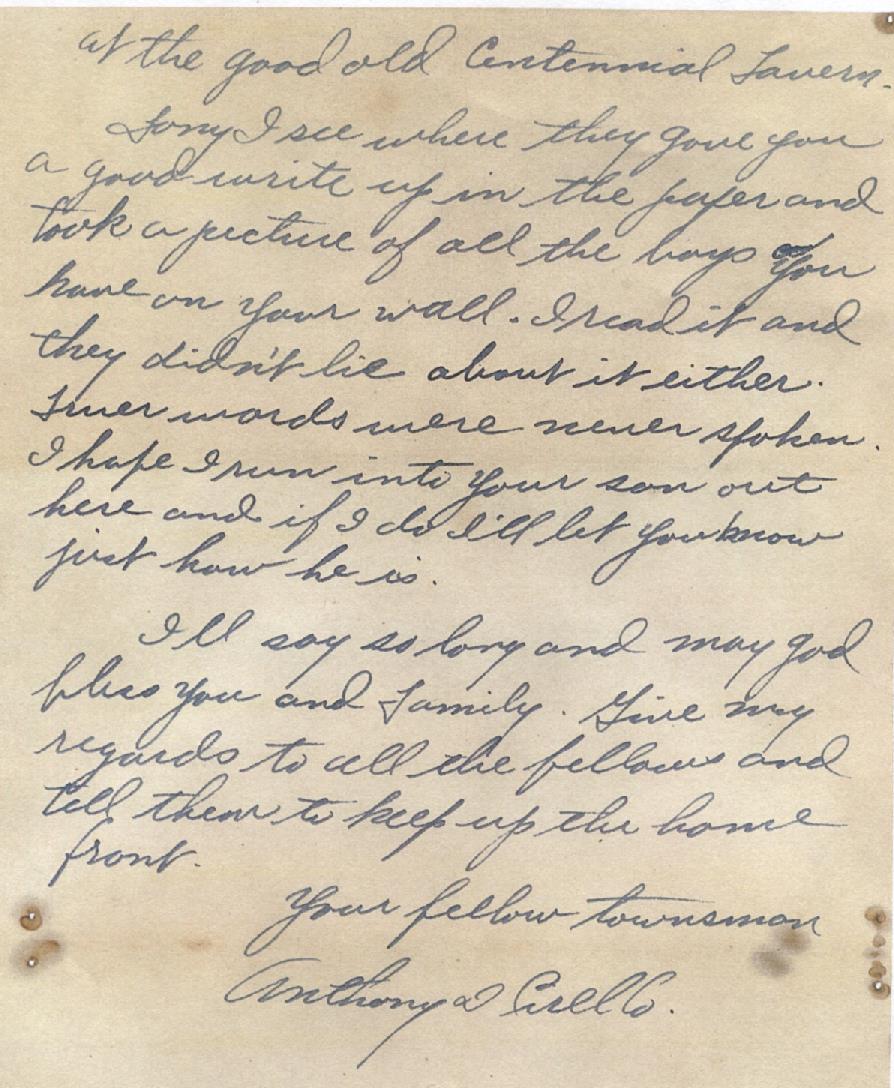 at the good old Centennial Tavern.
Tony I see where they gave you
a good write up in the paper and
took a picture of all the boys you
have on your wall. I read it and
they didn't lie about it either.
Truer words were never spoken.
I hope I run into your son out
here and if I do I'll let you know
just how he is.
I'll say so long and may god
bless you and family. Give my
regards to all the fellows and
tell them to keep up the home
front.
Your fellow townsman
Anthony D Cirello.